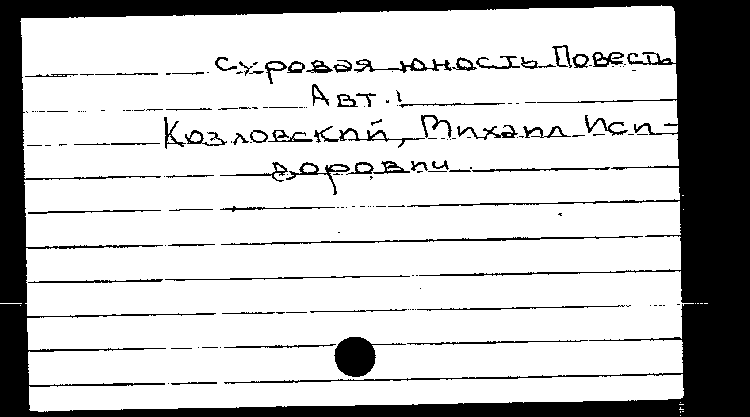 Суровая юность Повесть
Авт.:
Козловский, Михаил Иси-
дорович.